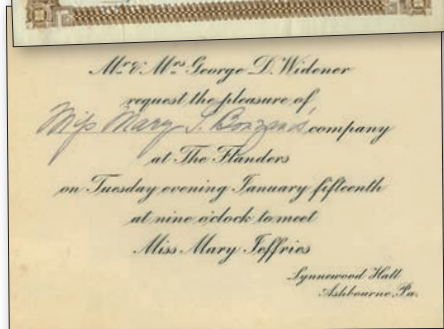 Mr & Mrs George D. Widener
request the pleasure of
Miss Mary S. company
at The Flanders
on Tuesday evening January fifteenth
at nine o'clock to meet
Miss Mary Jeffries
Lynnewood Hall
Ashbourne, Pa.